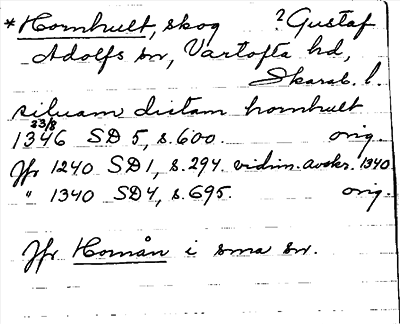 *Hornhult, skog ? Gustaf
Adolfs sn, Vartofta hd,
Skarab. l.
siluam dictam hornhult
23/8
1346 SD 5, s. 600. orig.
Jfr 1240 SD 1, s. 294. vidim. avskr. 1340
" 1340 SD 4, s. 695. orig.
Jfr Hornån i sma sn.